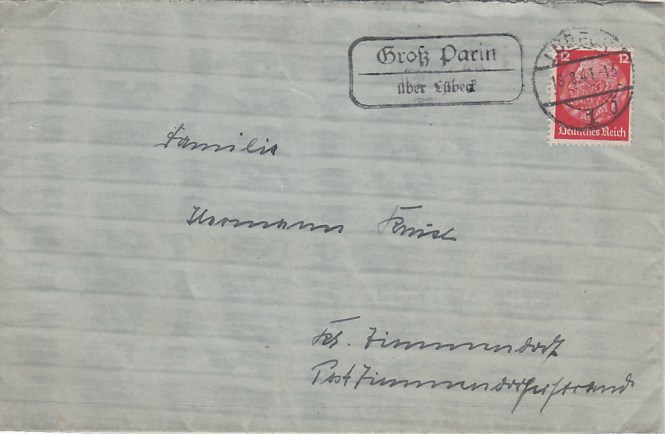 Groß Parin
über Lübeck
LÜBECK
12 12
41
1
Deutsches Reich
Familie
Hermann
Zimmendorf
Post Zimmendorferstrand